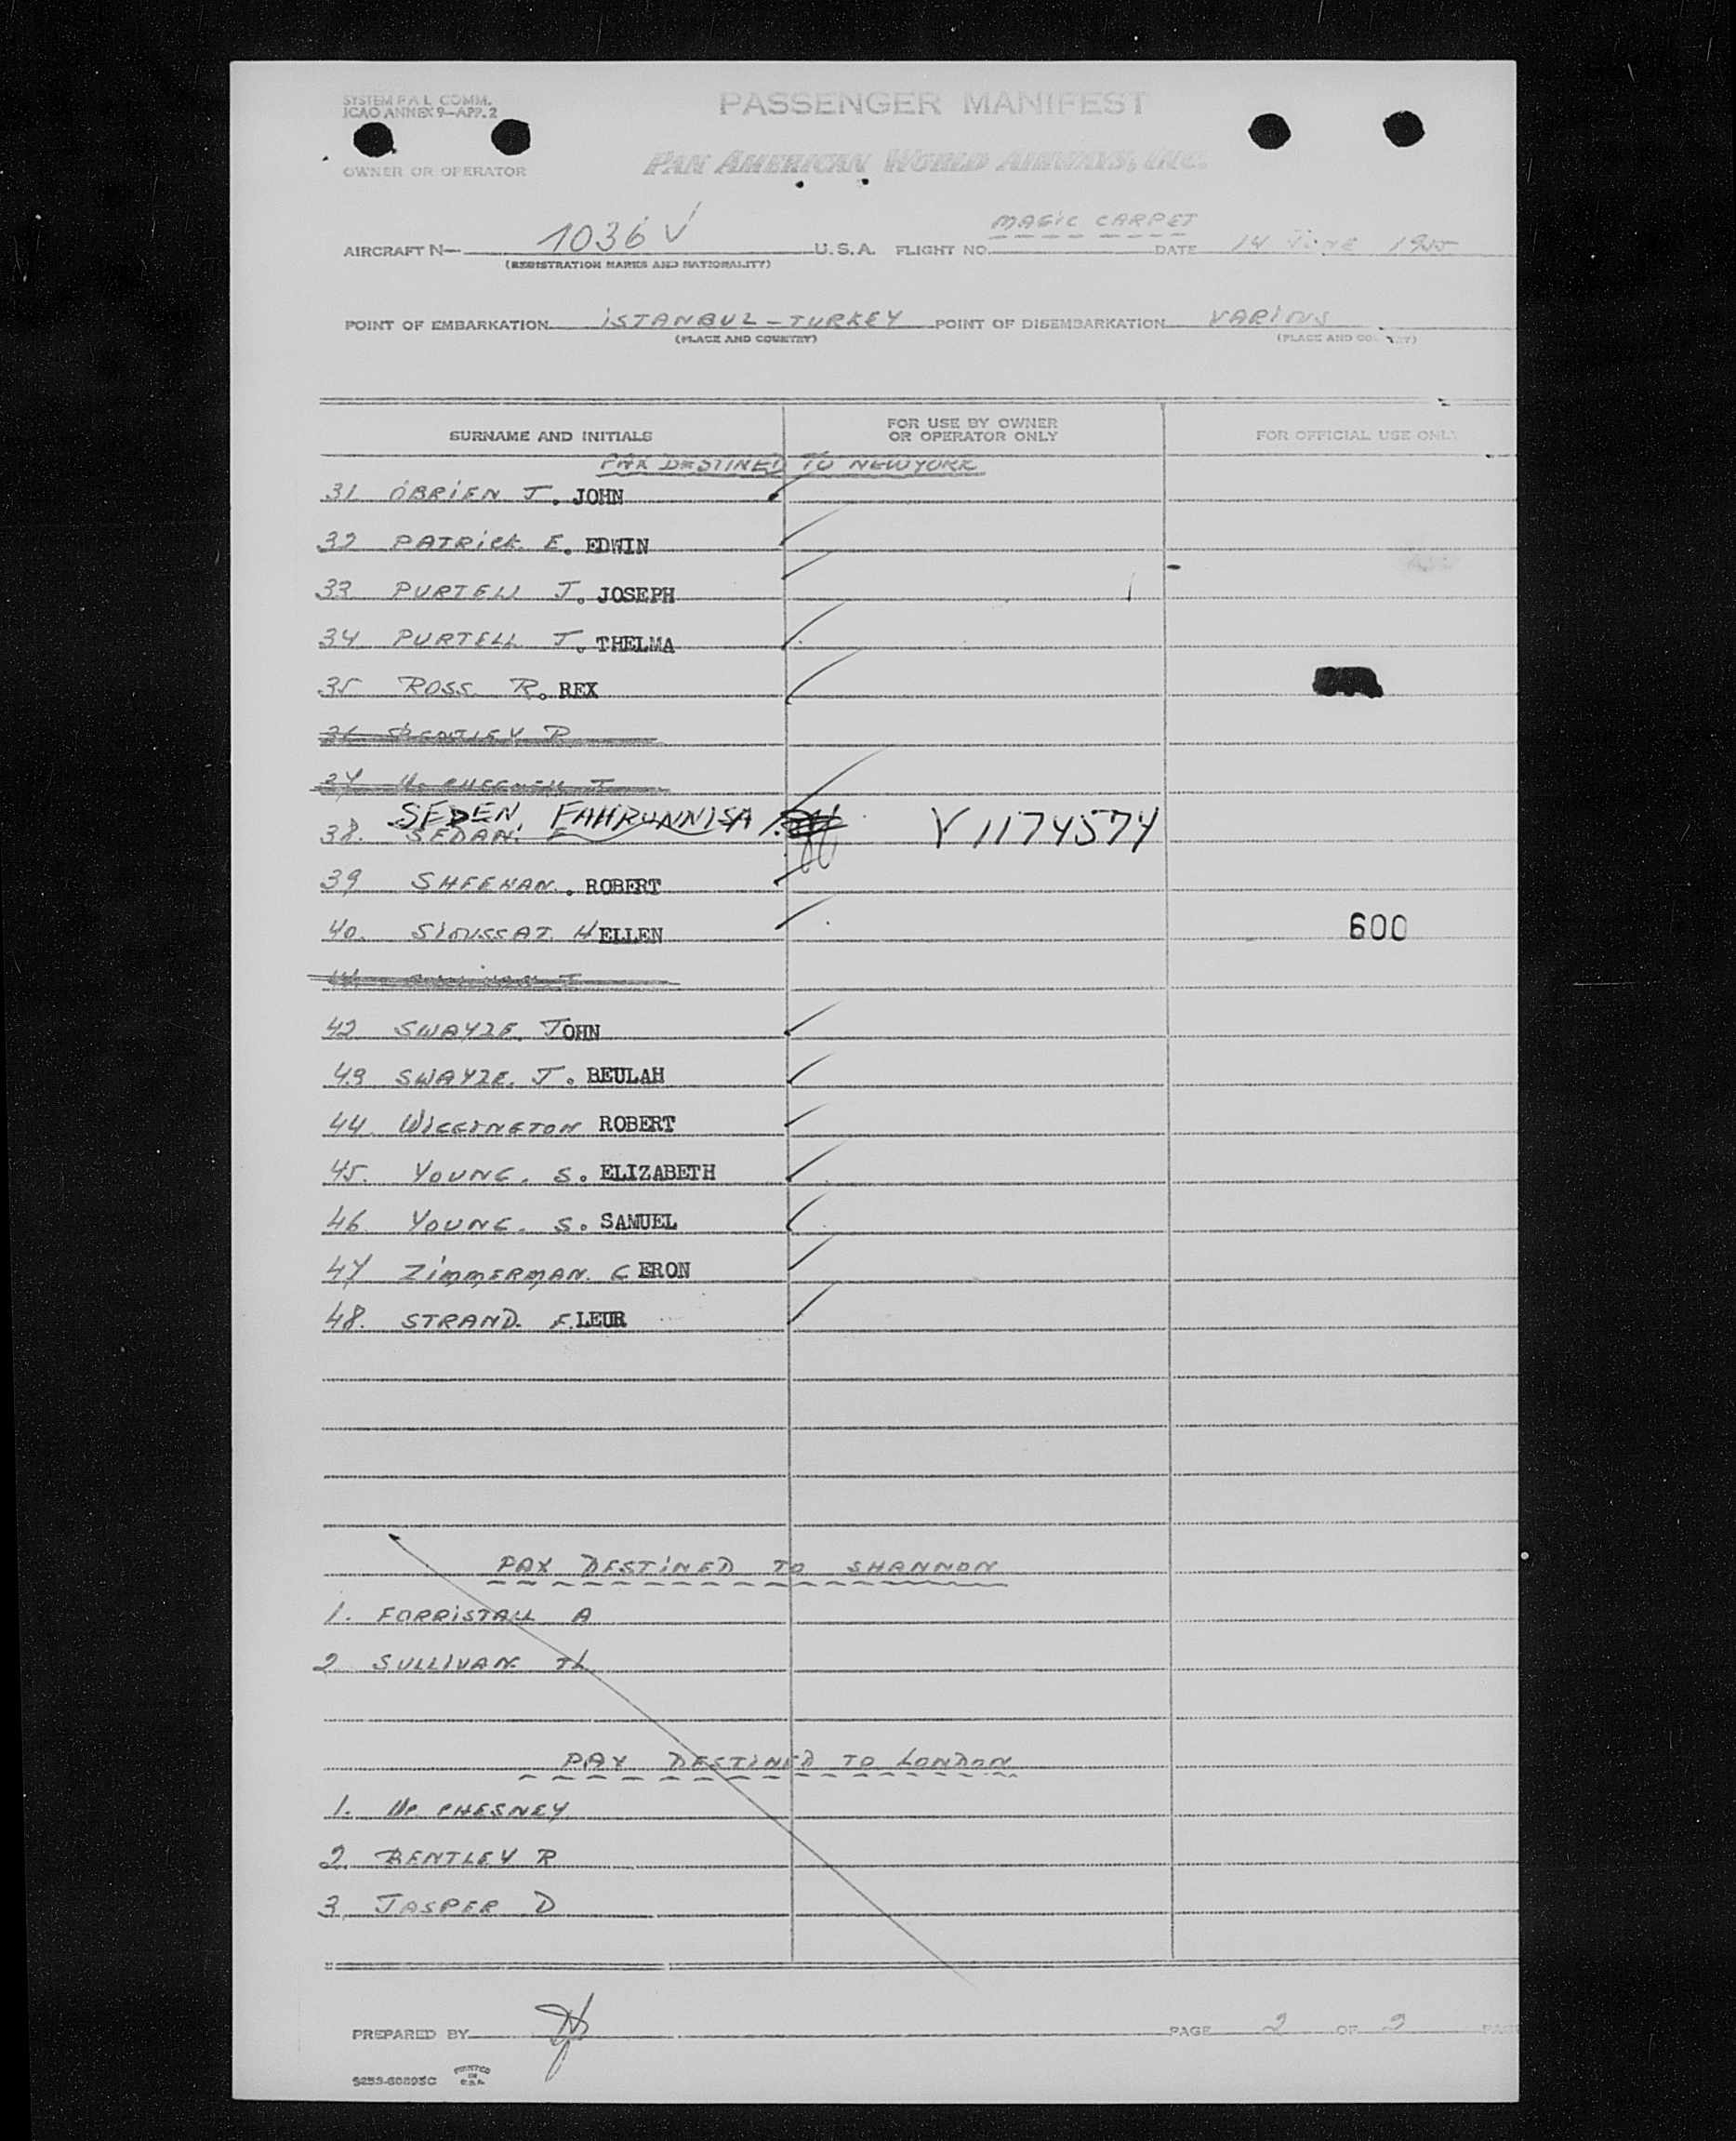 SYSTEM F A L COMM.
ICAO ANNEX 9—APP. 2
PASSENGER MANIFEST
OWNER OR OPERATOR
PAN AMERICAN WORLD AIRWAYS, INC.
MAGIC CARPET
AIRCRAFT N— 1036 V U.S.A. FLIGHT NO. DATE 14 JUNE 1955
(REGISTRATION MARKS AND NATIONALITY)
POINT OF EMBARKATION ISTANBUL - TURKEY POINT OF DISEMBARKATION VARIOUS
(PLACE AND COUNTRY) (PLACE AND COUNTRY)
SURNAME AND INITIALS FOR USE BY OWNER OR OPERATOR ONLY FOR OFFICIAL USE ONLY
PAX DESTINED TO NEWYORK
31 O'BRIEN J. JOHN
32 PATRICK E. EDWIN
33 PURTELL J. JOSEPH
34 PURTELL J. THELMA
35 ROSS R. REX
36 BENTLEY R
37
SEDEN, FAHRUNNISA V 1174574
38. SEDAN. F
39 SHEEHAN. ROBERT
40. SIOUSSAT HELLEN 600
42 SWAYZE. JOHN
43 SWAYZE. J. BEULAH
44. WIGGINGTON ROBERT
45. YOUNG. S. ELIZABETH
46. YOUNG. S. SAMUEL
47 ZIMMERMAN. GERON
48. STRAND. F.LEUR
PAX DESTINED TO SHANNON
1. FORRISTALL A
2 SULLIVAN
PAX DESTINED TO LONDON
1. Mc CHESNEY
2. BENTLEY R
3. JASPER D
PREPARED BY PAGE 2 OF 2
9253-60895C PRINTED IN U.S.A.